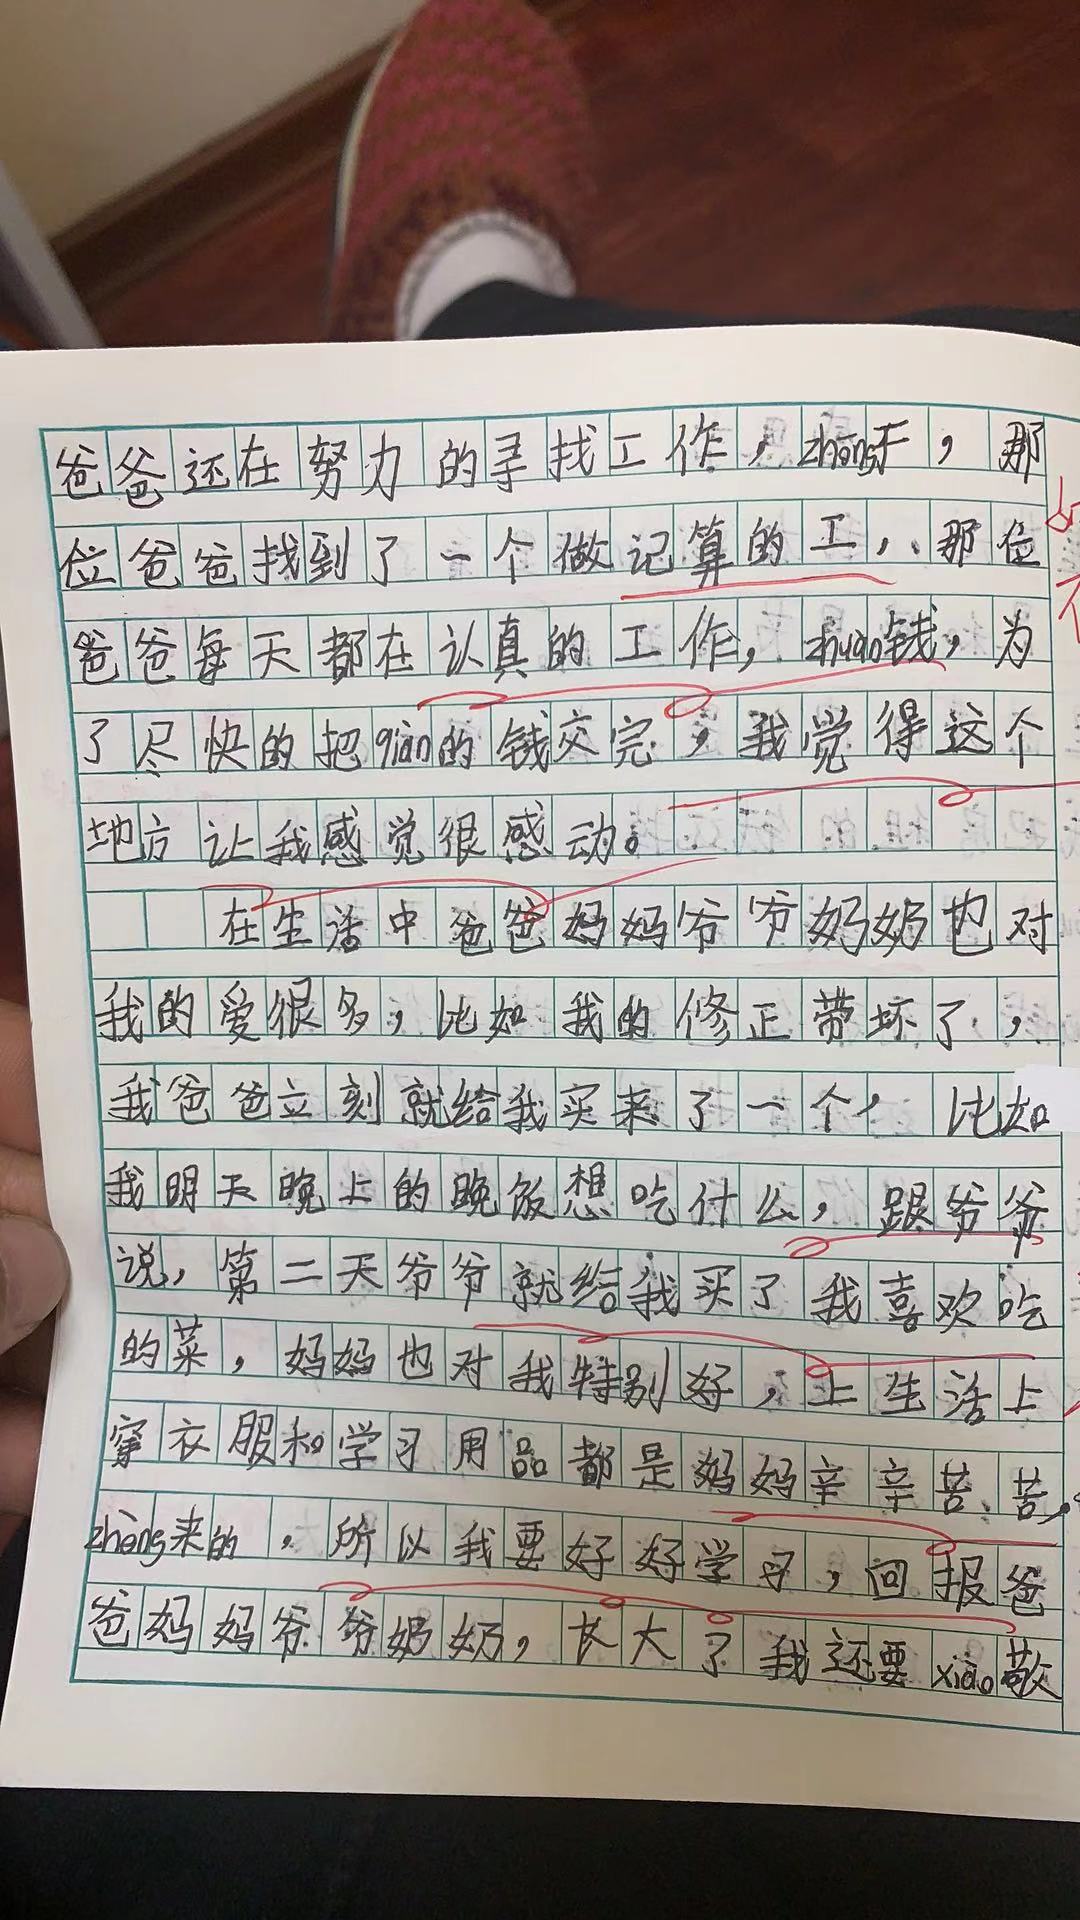 爸爸还在努力的寻找工作，zhōng于，那
位爸爸找到了一个做记算的工，那位
爸爸每天都在认真的工作，zhuàn钱，为
了尽快的把qiàn的钱交完，我觉得这个
地方让我感觉很感动。
在生活中爸爸妈妈爷爷奶奶也对
我的爱很多，比如我的修正带坏了，
我爸爸立刻就给我买来了一个，比如
我明天晚上的晚饭想吃什么，跟爷爷
说，第二天爷爷就给我买了我喜欢吃
的菜，妈妈也对我特别好，上生活上
穿衣服和学习用品都是妈妈辛辛苦苦，
zhèng来的，所以我要好好学习，回报爸
爸妈妈爷爷奶奶，长大了我还要xiào敬